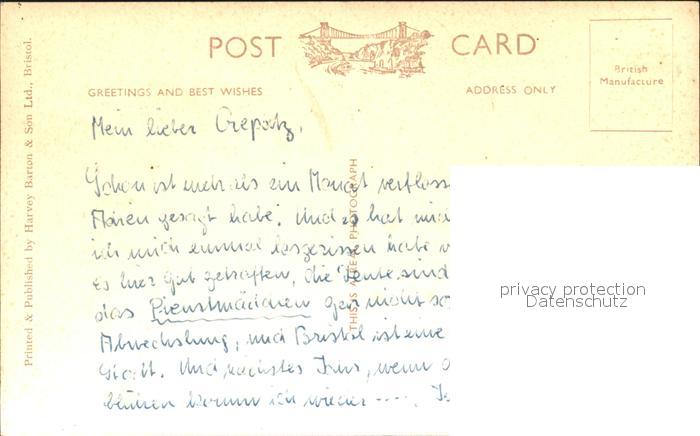 POST CARD
British
Manufacture
GREETINGS AND BEST WISHES
ADDRESS ONLY
Printed & Published by Harvey Barton & Son Ltd., Bristol.
THIS IS A REAL PHOTOGRAPH
Mein lieber
Schon ist mehr als ein Monat verfloss
gesagt habe. Und es hat mi
ich mich einmal losgerissen habe
es hier gut getroffen, die Leute sind
das Dienstmädchen gar nicht so
Abwechslung, und Bristol ist eine
Stadt. Und nächstes Jahr, wenn
blühen komm ich wieder ----.
privacy protection
Datenschutz